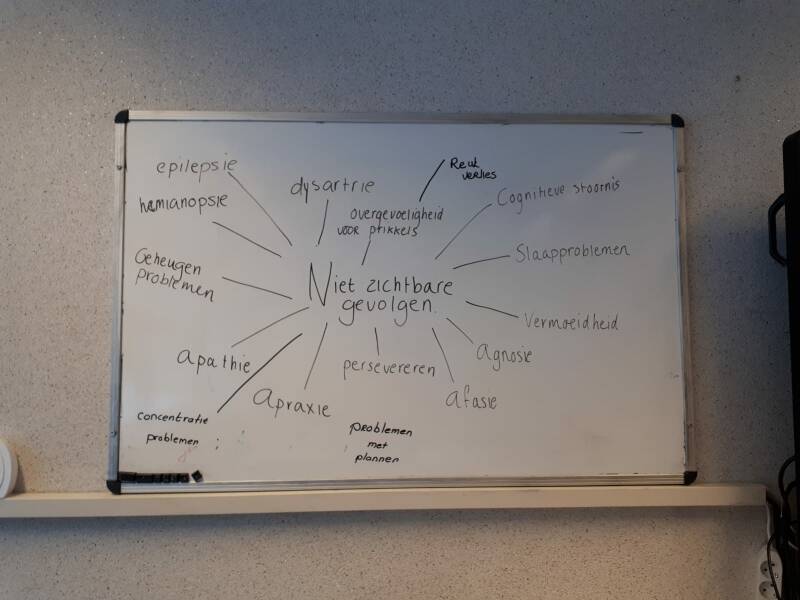 epilepsie
dysartrie
Reuk
verlies
Cognitieve stoornis
hemianopsie
overgevoeligheid
voor prikkels
Slaapproblemen
Geheugen
problemen
Niet zichtbare
gevolgen.
Vermoeidheid
Apathie
persevereren
Agnosie
Apraxie
Afasie
concentratie
problemen
problemen
met
plannen